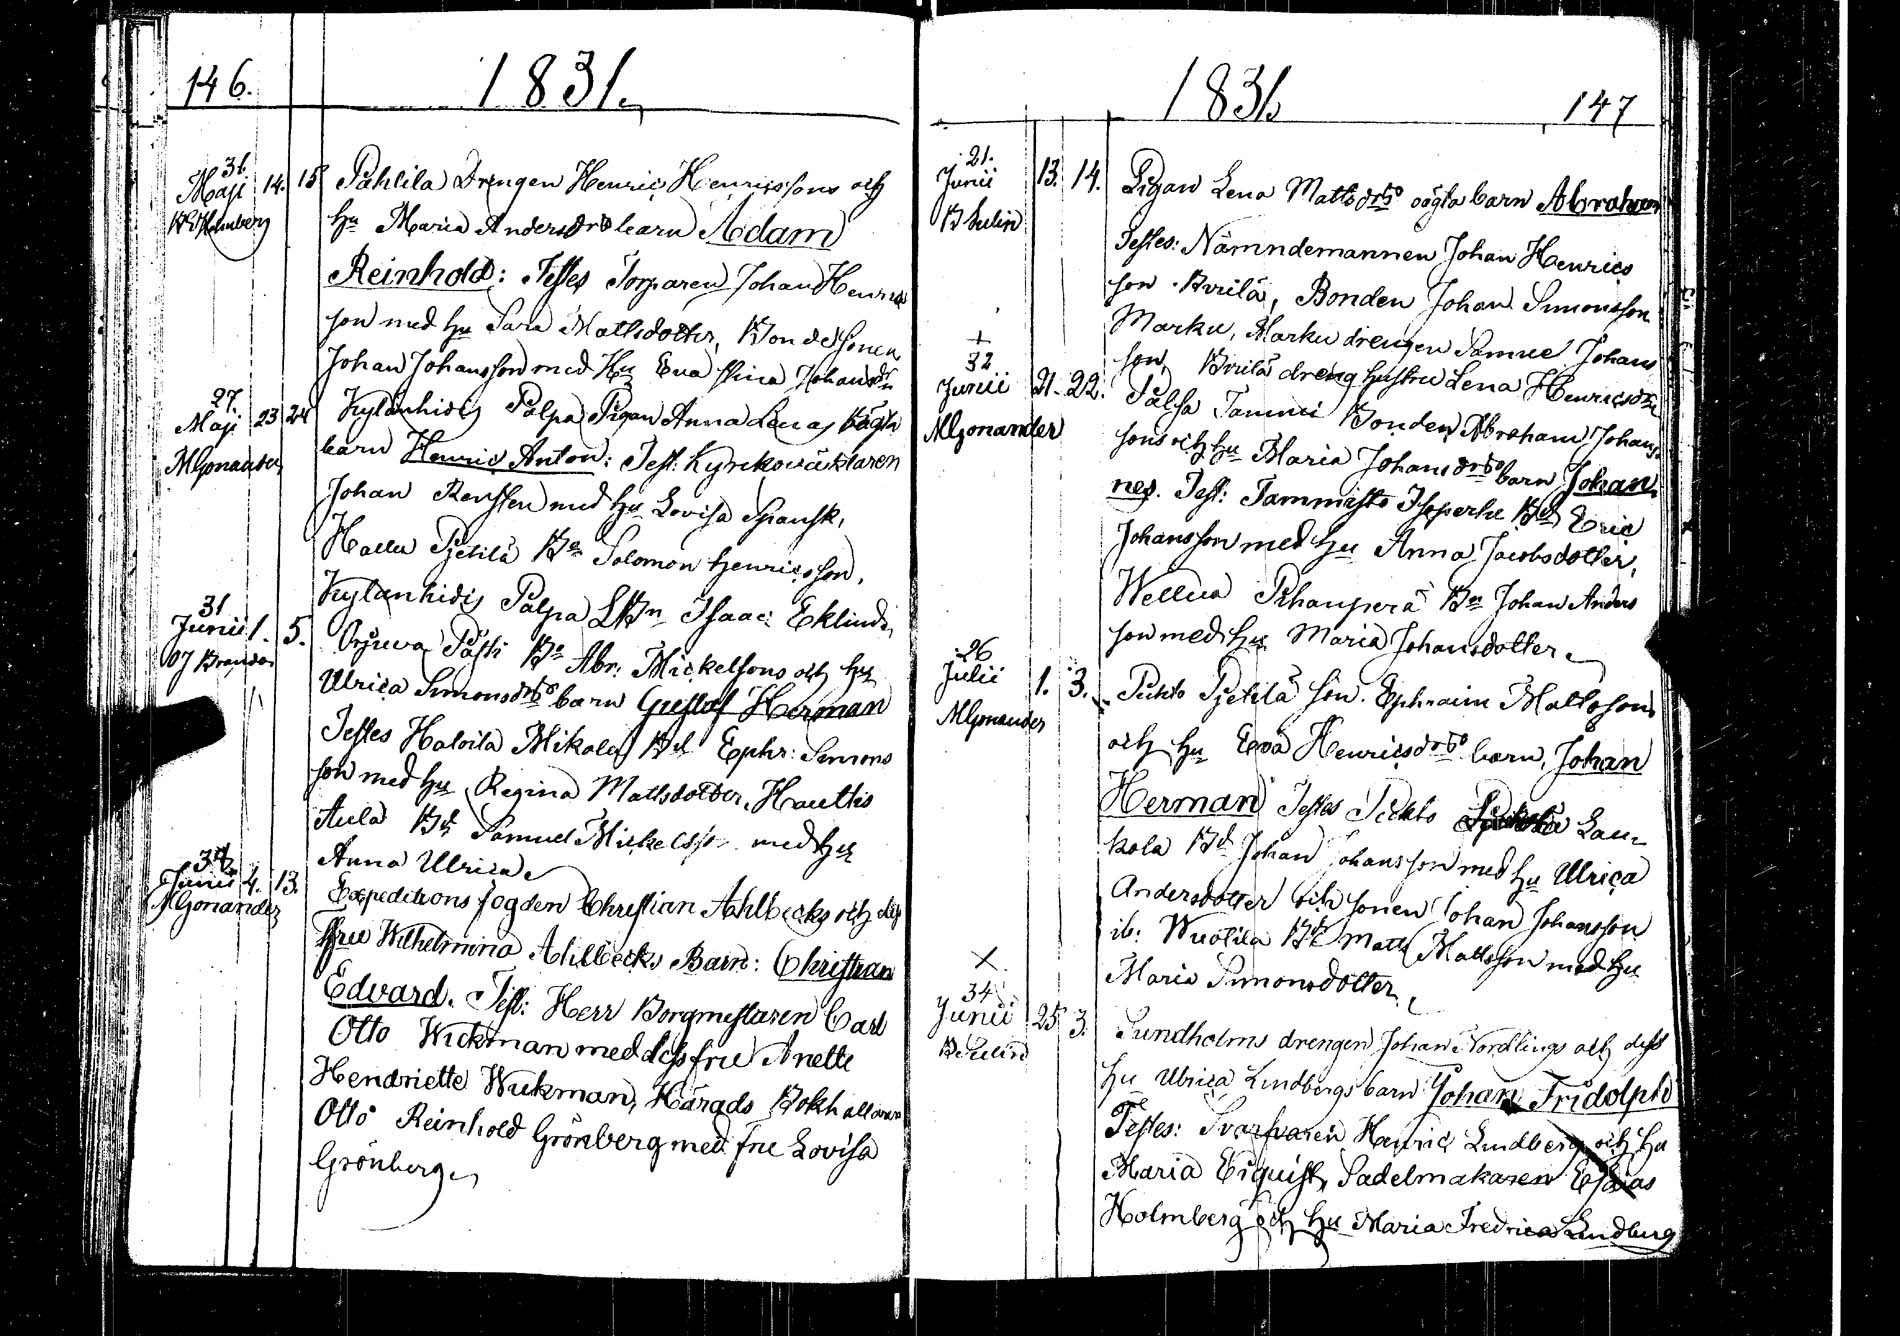 146.
1831.
31.
Maji 14. 15
Påhlila Drengen Henric Henricssons och
hu Maria Andersdrs barn Adam
Reinhold: Testes Torparen Johan Henrics
son med hu Sara Mattsdotter, Bondesonen
Johan Johansson med Hu Eva Johansdr
27.
Maji 23 24
MGonander
Kylänhidis Palpa Pigan Anna Lenas oägta
barn Henric Anton: Test: Kyrckowäktaren
Johan med hu Lovisa Spansk,
Pjetilä Bn Solomon Henricsson,
Kylänhidis Palpa Isaac Eklund
31
Junii 1. 5.
Påsti Bn Abr: Mickelsons och hu
Ulrica Simonsdrs barn Gustaf Herman
Testes Haloila Mikola Bd Ephr: Simons
son med hu Regina Mattsdotter, Hauttis
Aula Bd Samuel Mickelss. med hu
Anna Ulrica
34
Junii 4. 13.
MGonander
Expeditions fogden Christian Ahlbecks och dess
fru Wilhelmina Ahlbecks Barn: Christian
Edvard. Test: Herr Borgmestaren Carl
Otto Wickman med dess fru Anette
Hendriette Wickman, Härads Bokhallaren
Otto Reinhold Grönberg med fru Lovisa
Grönberg
1831
147
21.
Junii 13. 14.
Pigan Lena Mattsdrs oägta barn Abraham
Testes: Nämndemannen Johan Henrics
son Kvrilä, Bonden Johan Simonsson
Marku, Marku drengen Samuel Johans
son, Kvrilä dreng hustru Lena Henricsdr
+
32
Junii 21. 22.
MGonander
Palsa Tammi Bonden Abraham Johans
sons och hu Maria Johansdrs barn Johan
nes. Test: Tammisto Bd Eric
Johansson med hu Anna Jacobsdotter,
Bn Johan Anders
son med hu Maria Johansdotter
26
Julii 1. 3.
MGonander
Pukto Pjetilä son Ephraim Mattssons
och hu Eva Henricsdrs barn, Johan
Herman Testes Lau
kola Bd Johan Johansson med hu Ulrica
Andersdotter och sonen Johan Johansson
ib: Wuolila Bd Matts Mattsson med hu
Maria Simonsdotter
X
34
Junii 25 3.
Sundholms drengen Johan Nordlings och dess
hu Ulrica Lindbergs barn Johan Fridolph
Testes: Svarfvaren Henric Lindberg och hu
Maria Sadelmakaren Esaias
Holmberg och hu Maria Fredrica Lindberg